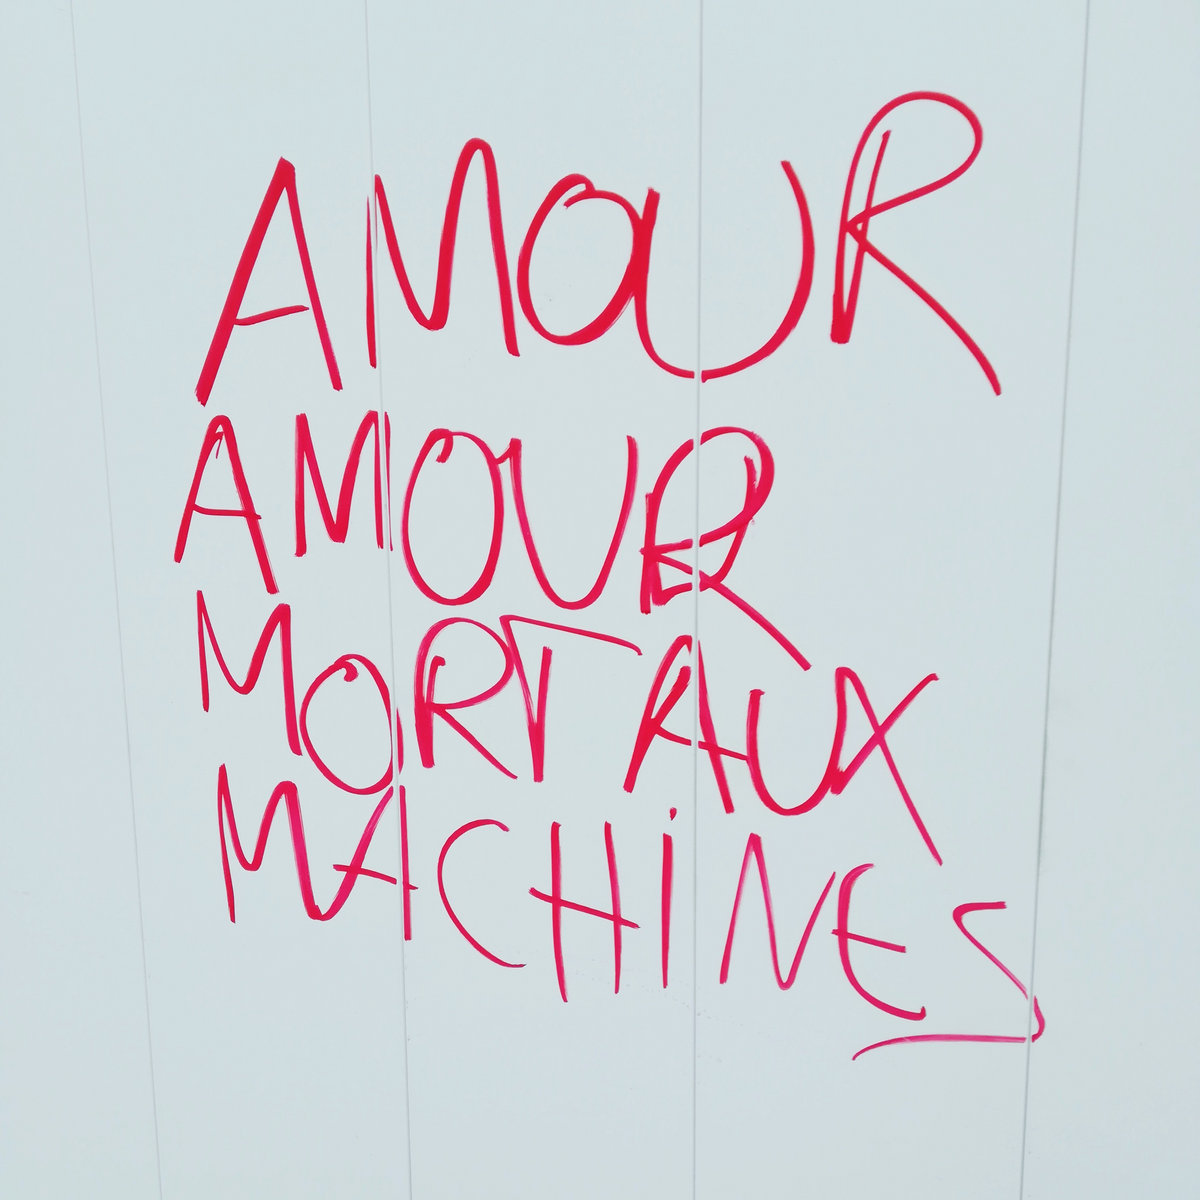 AMOUR
AMOUR
MORT AUX
MACHINES